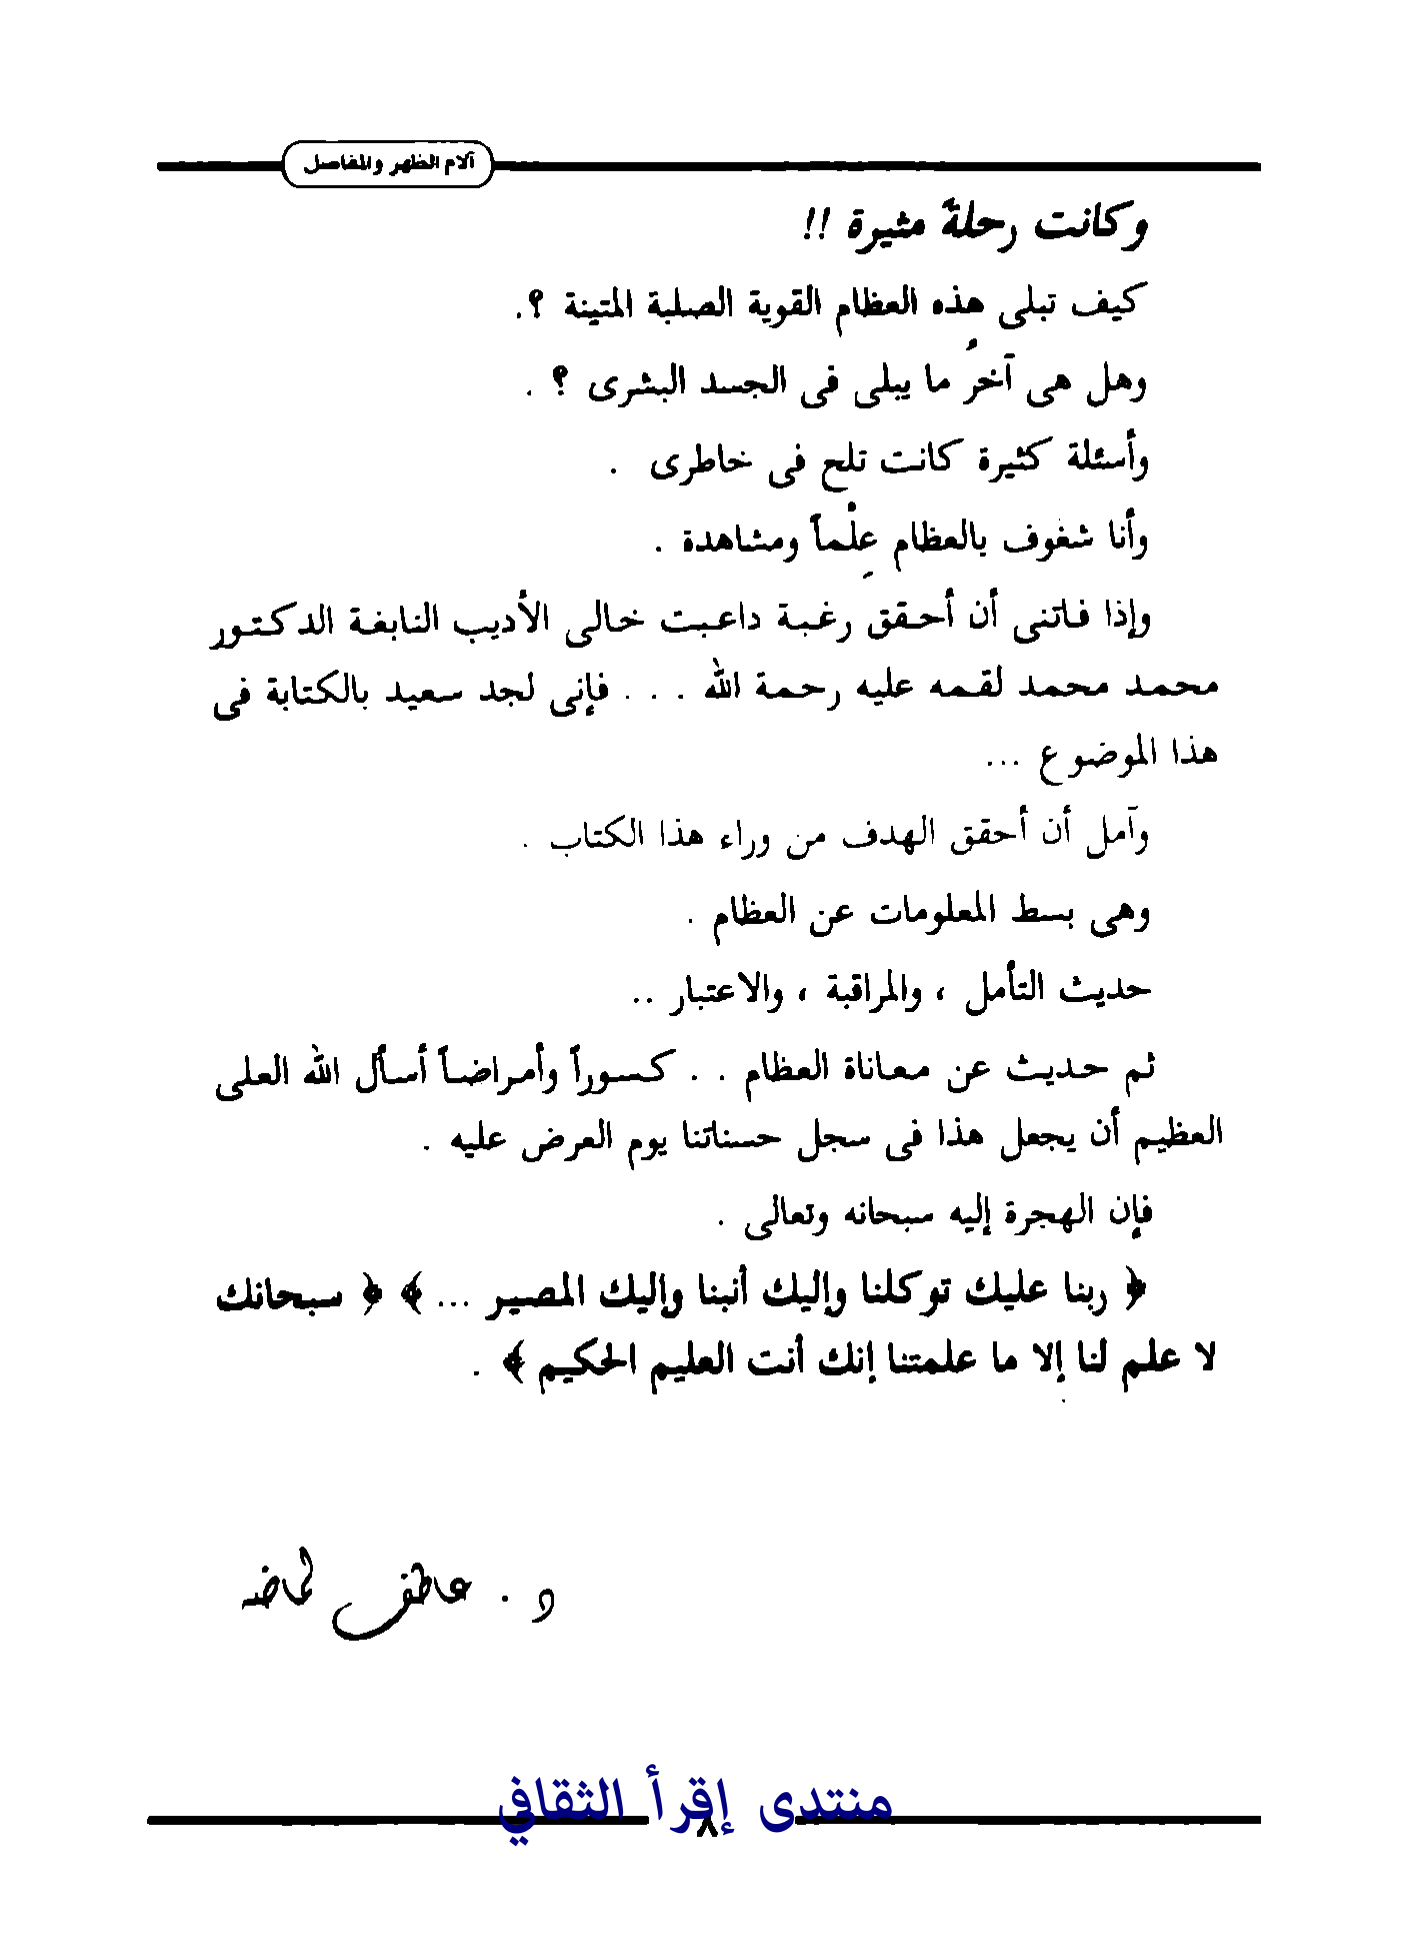 آلام الظهر والمفاصل
وكانت رحلةً مثيرة !!
كيف تبلى هذه العظام القوية الصلبة المتينة ؟.
وهل هى آخرُ ما يبلى فى الجسد البشرى ؟ .
وأسئلة كثيرة كانت تلح فى خاطرى .
وأنا شغوف بالعظام عِلْماً ومشاهدة .
وإذا فاتنى أن أحقق رغبة داعبت خالى الأديب النابغة الدكتور
محمد محمد لقمه عليه رحمة الله . . . فإنى لجد سعيد بالكتابة فى
هذا الموضوع ...
وآمل أن أحقق الهدف من وراء هذا الكتاب .
وهى بسط المعلومات عن العظام .
حديث التأمل ، والمراقبة ، والاعتبار ..
ثم حديث عن معاناة العظام . . كسوراً وأمراضاً أسأل الله العلى
العظيم أن يجعل هذا فى سجل حسناتنا يوم العرض عليه .
فإن الهجرة إليه سبحانه وتعالى .
﴿ ربنا عليك توكلنا وإليك أنبنا وإليك المصير ... ﴾ ﴿ سبحانك
لا علم لنا إلا ما علمتنا إنك أنت العليم الحكيم ﴾ .
د . عاطف لماضه
منتدى إقرأ الثقافي
٨